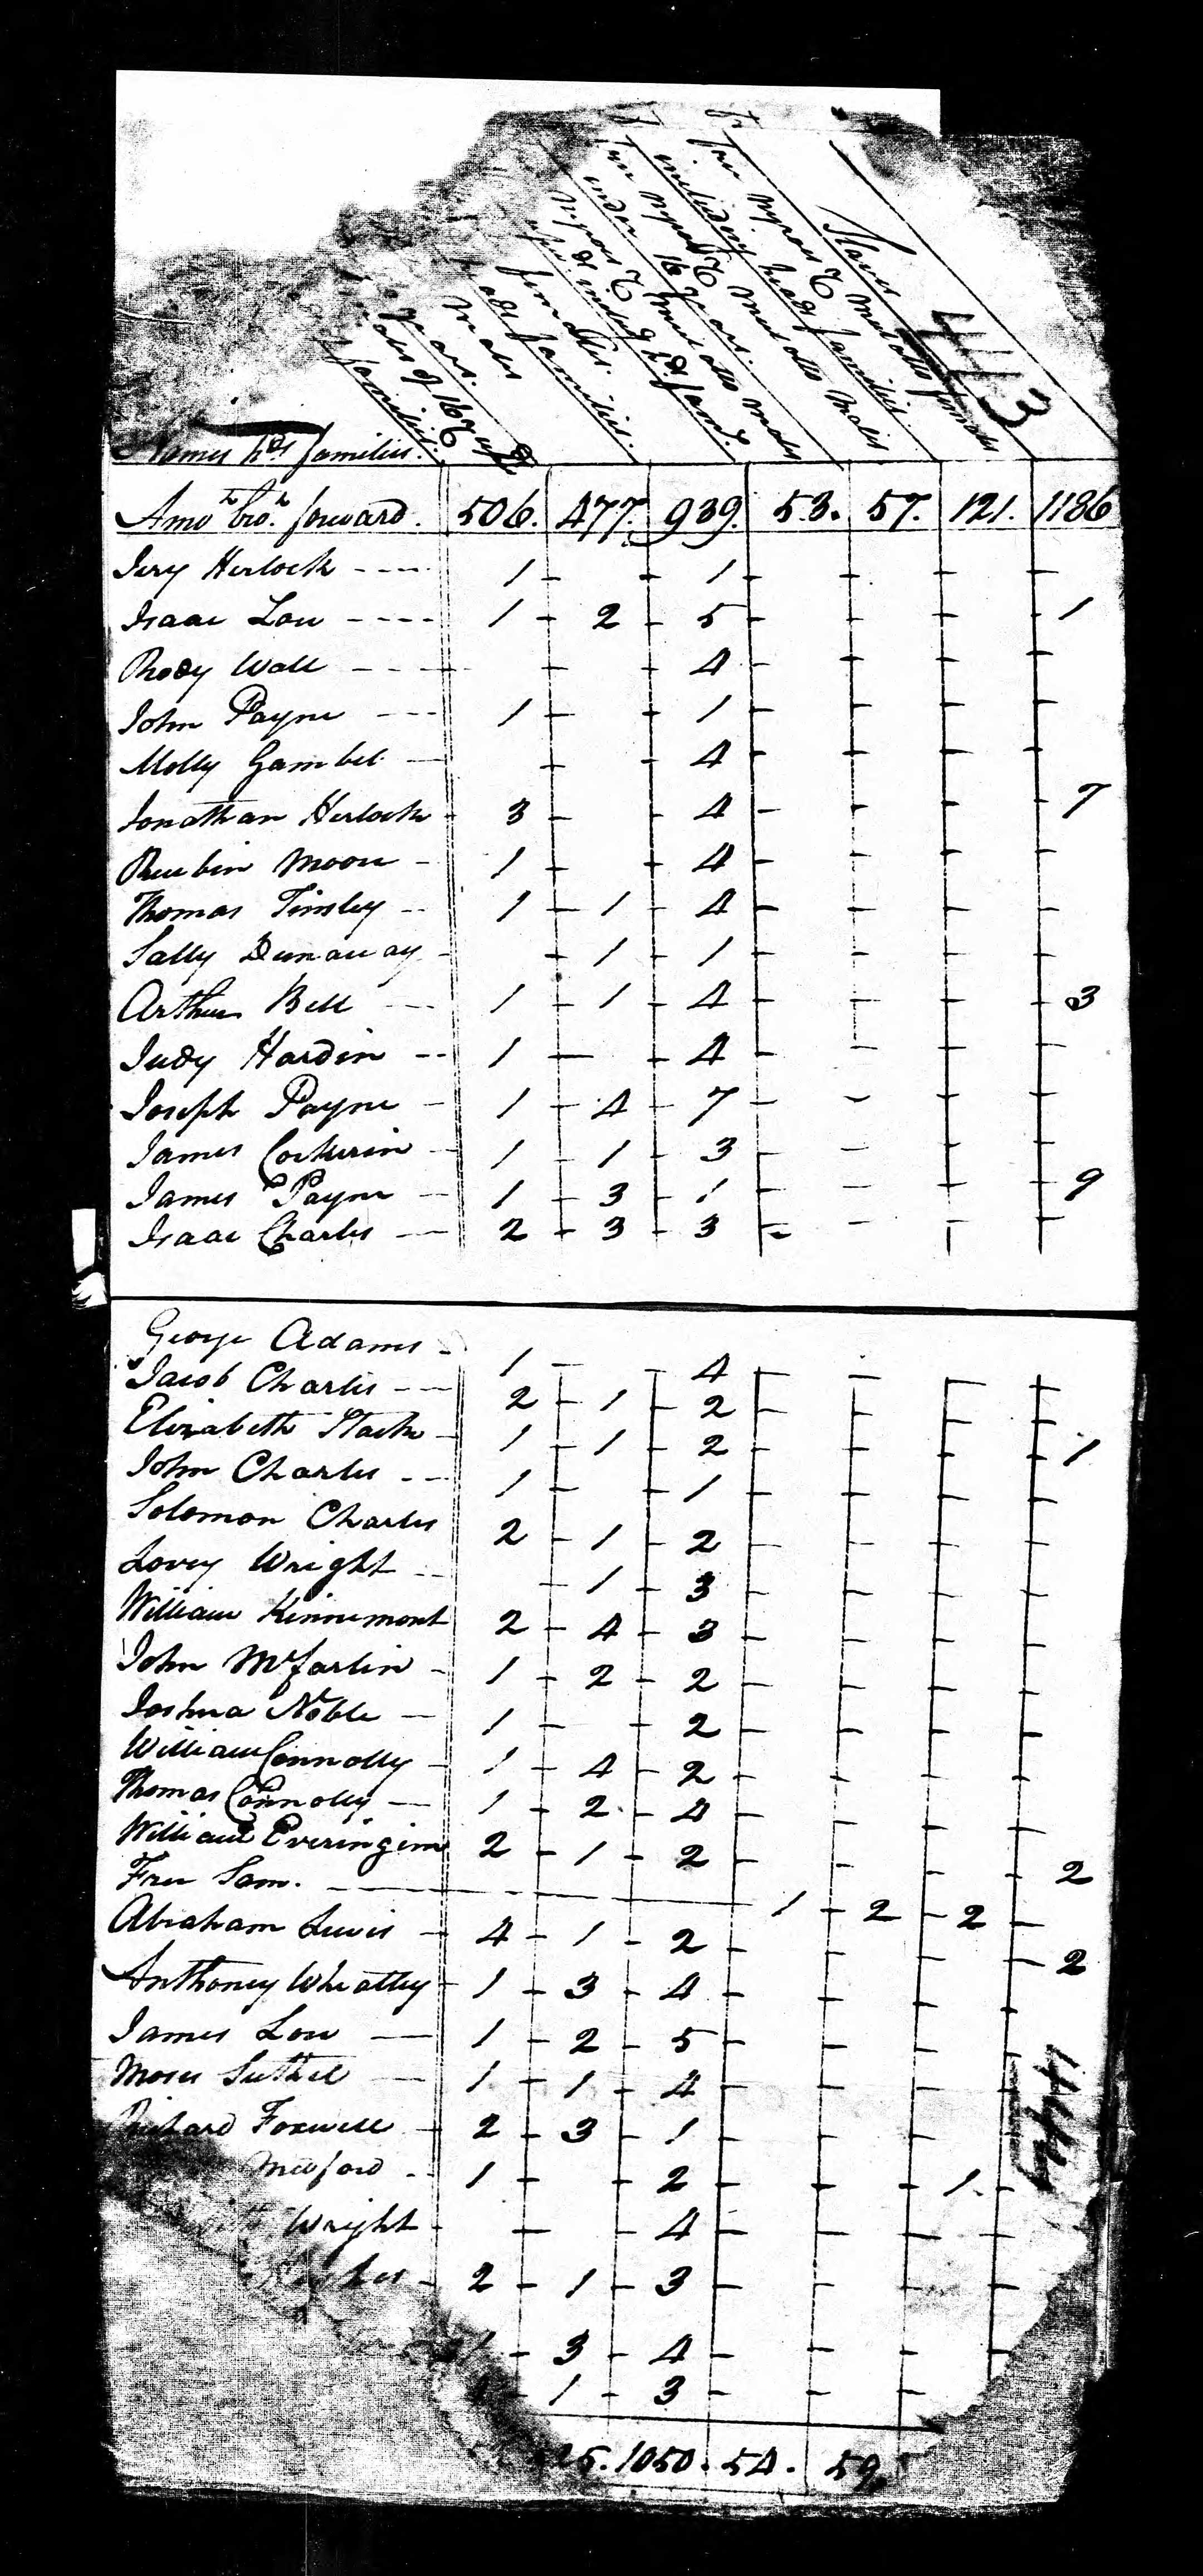 413
Slaves
free Negroes & Mulatto females
including heads families.
free Negroes & Mulatto Males
under 16 years.
Negroes & Mulatto males
includ. hds famil
females.
heads families.
Males
years.
males of 16 & up
families.
Names hds families.
Amo.t bro.t forward. 506. 477. 939. 53. 57. 121. 1186
Jery Herlock ---- 1 - - 1 - - - -
Isaac Low ---- 1 - 2 - 5 - - - 1
Rhody Wall --- - - 4 - - - -
John Payne --- 1 - - 1 - - - -
Molly Gambel - - - 4 - - - -
Jonathan Herlock - 3 - - 4 - - - - 7
Reubin Moore - 1 - - 4 - - - -
Thomas Tinsley -- 1 - 1 - 4 - - - -
Sally Dunaway - - 1 - 1 - - - -
Arthur Bell --- 1 - 1 - 4 - - - - 3
Judy Hardin -- 1 - - 4 - - - -
Joseph Payne - 1 - 4 - 7 - - - -
James Cockerin - 1 - 1 - 3 - - - -
James Payne -- 1 - 3 - 1 - - - - 9
Isaac Charles -- 2 - 3 - 3 - - - -
George Adams - 1 - - 4 - - - -
Jacob Charles --- 2 - 1 - 2 - - - -
Elizabeth Stack - 1 - 1 - 2 - - - - 1
John Charles --- 1 - - 1 - - - -
Solomon Charles 2 - 1 - 2 - - - -
Lovey Wright -- - 1 - 3 - - - -
William Kinnemont 2 - 4 - 3 - - - -
John Mcfarlin - 1 - 2 - 2 - - - -
Joshua Noble - 1 - - 2 - - - -
William Connolly - 1 - 4 - 2 - - - -
Thomas Connolly -- 1 - 2 - 4 - - - -
William Everingim 2 - 1 - 2 - - - - 2
Free Sam. ---- 1 - 2 - 2 -
Abraham Lewis - 4 - 1 - 2 - - - - 2
Anthoney Wheatley - 1 - 3 - 4 - - - -
James Low -- 1 - 2 - 5 - - - -
Moses Suthel -- 1 - 1 - 4 - - - -
Richard Foxwell - 2 - 3 - 1 - - - -
Meaford - 1 - - 2 - - - 1 -
Wright - - - 4 - - - -
2 - 1 - 3 - - - -
1 - 3 - 4 - - - -
- 1 - 3 - - -
25. 1050. 54. 59.